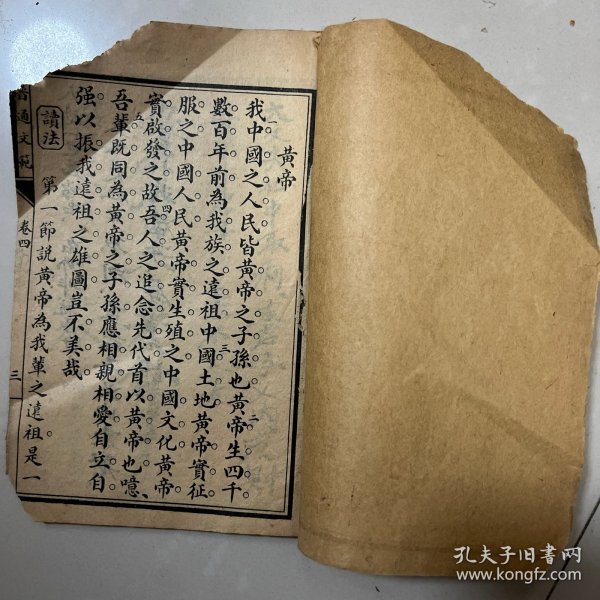 黃帝
我中國之人民皆黃帝之子孫也黃帝生四千
數百年前為我族之遠祖中國土地黃帝實征
服之中國人民黃帝實生殖之中國文化黃帝
實啟發之故吾人之追念先代首以黃帝也噫
吾輩既同為黃帝之子孫應相親相愛自立自
强以振我遠祖之雄圖豈不美哉
讀法
第一節説黃帝為我輩之遠祖是一
通文範
卷四
三
孔夫子旧书网
www.kongfz.com